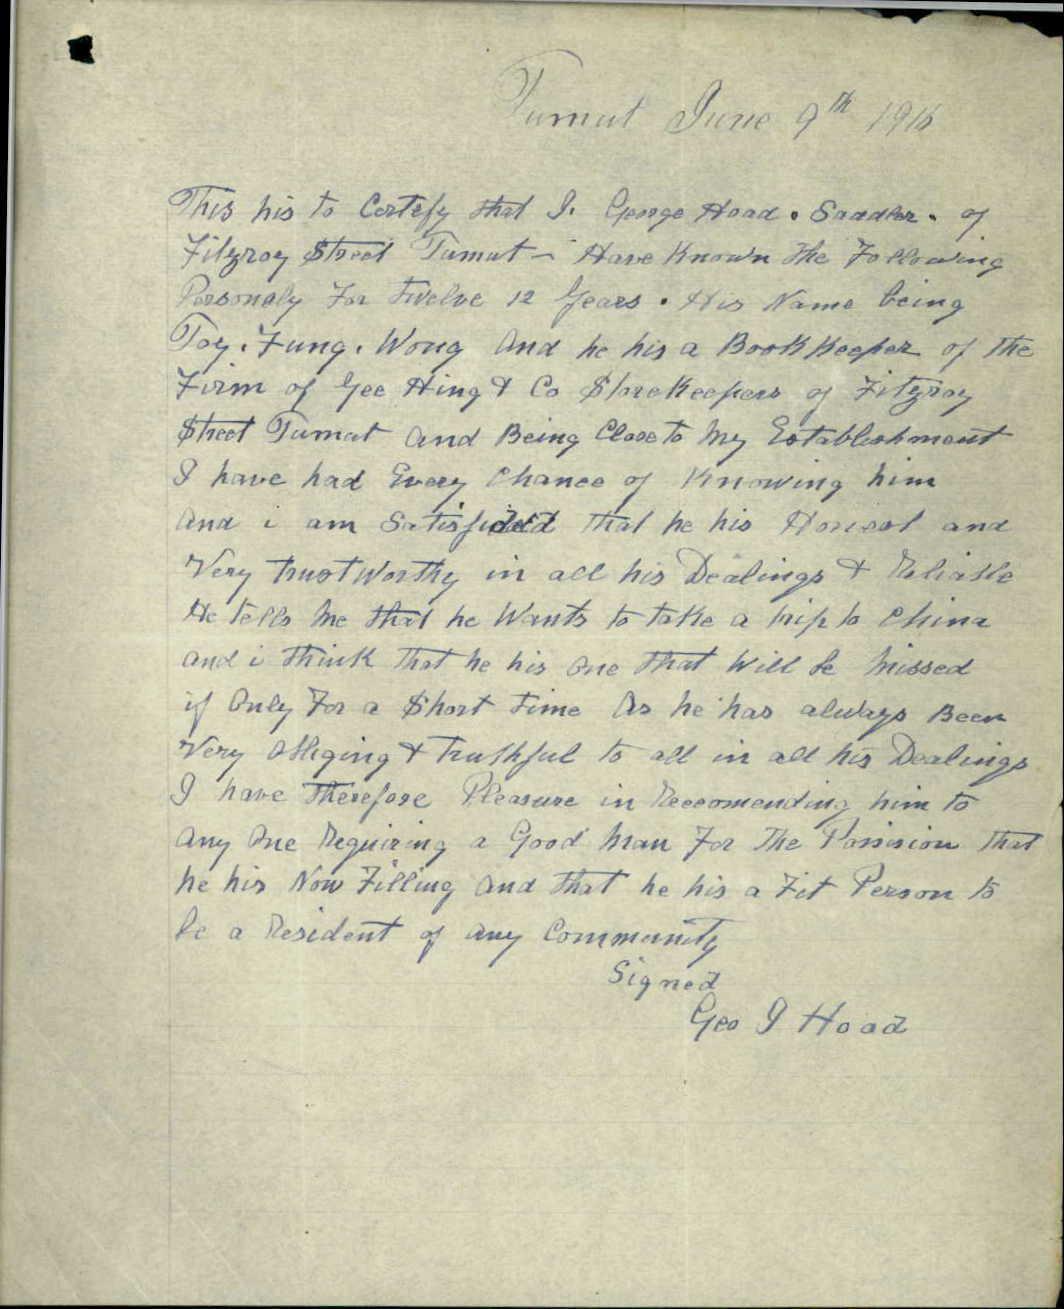 Tumut June 9th 1916
This his to Certefy that I. George Hoad. Saddler. of
Fitzroy Street Tumut - Have Known the Following
Personaly For Twelve 12 Years. His Name being
Toy. Fung. Wong And he his a Book Keeper of the
Firm of Gee Hing & Co StoreKeepers of Fitzroy
Street Tumut and Being Close to My Establishment
I have had Every Chance of Knowing him
And i am Satisfided that he his Honest and
Very trustworthy in all his Dealings & Reliable
He tells Me that he Wants to take a trip to China
and i think that he his one that Will be Missed
if Only For a Short Time As he has always Been
Very Obliging & Truthful to all in all his Dealings
I have Therefore Pleasure in Reccomending him to
any One Requiring a Good Man For The Possision that
he his Now Filling And that he his a Fit Person to
be a Resident of any Community
Signed
Geo I Hoad